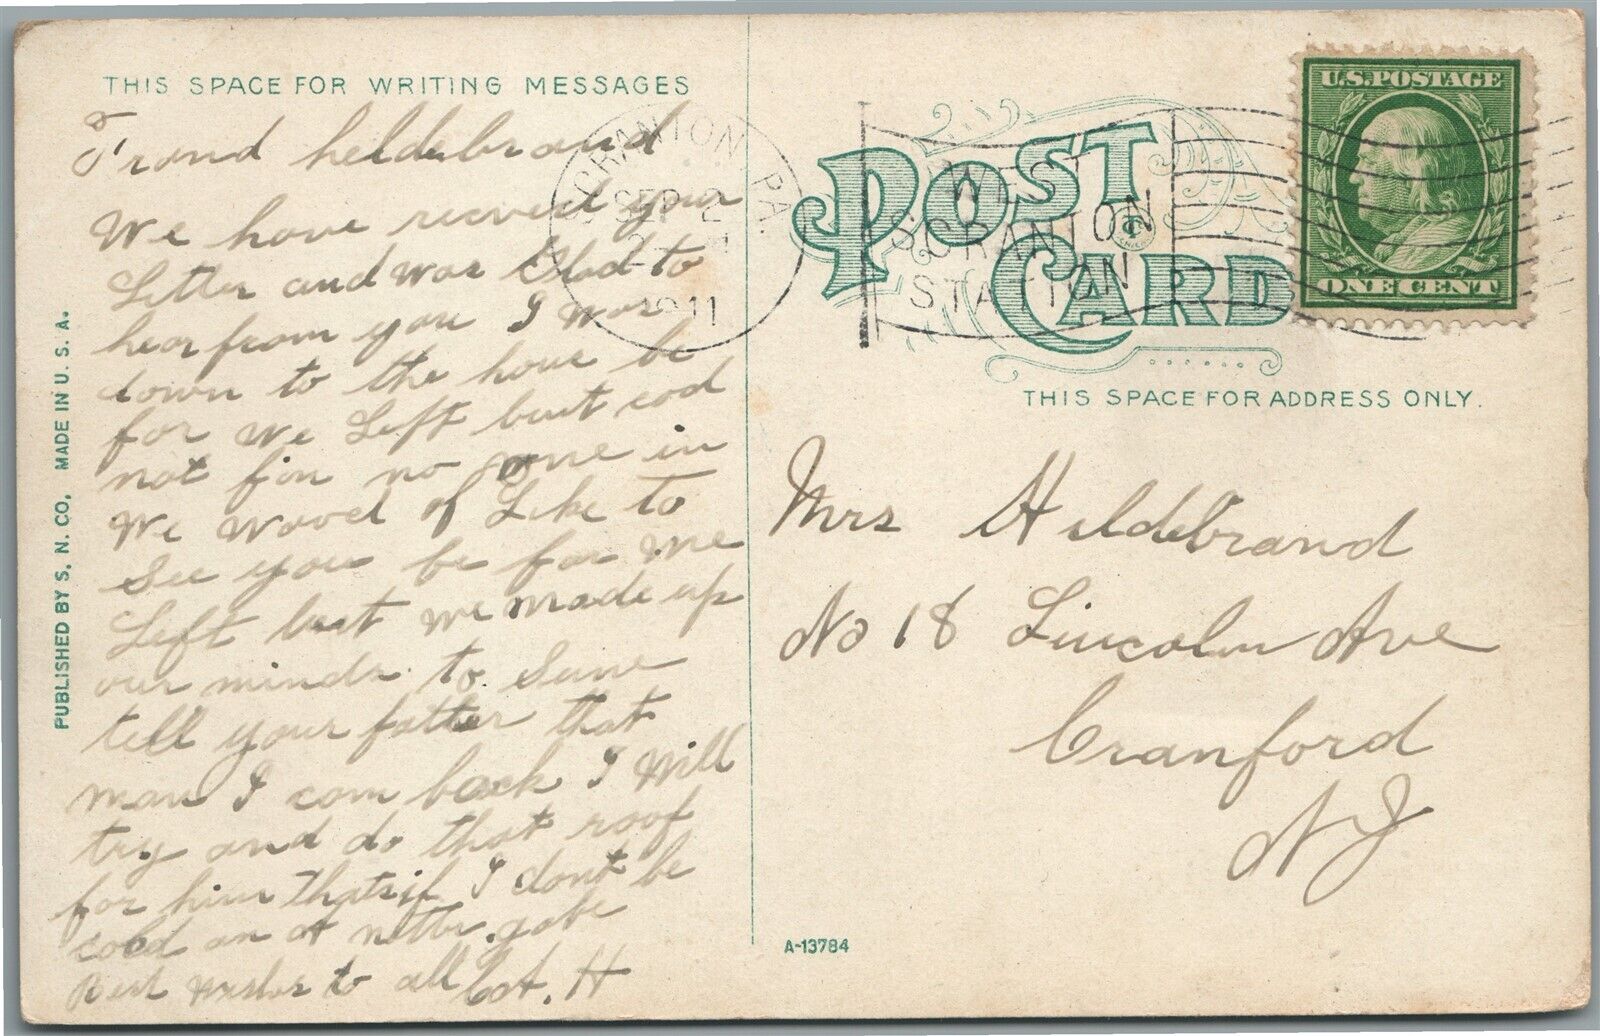 THIS SPACE FOR WRITING MESSAGES
Frand heldebrand
We have recived your
Letter and was Glad to
hear from you I was
down to the house be
for we Left but cod
not fin no one in
We wovel of Like to
See you be for we
Left but we made up
our minds to Sune
tell your father that
man I com back I Will
try and do that roof
for him thats if I dont be
cold an at nother gobe
Best Wishes to all Cat. H
PUBLISHED BY S. N. CO. MADE IN U. S. A.
SCRANTON PA.
SEP 2
1911
WEST
SCRANTON
STATION
POST
CARD
U.S. POSTAGE
ONE CENT
THIS SPACE FOR ADDRESS ONLY.
Mrs Hildebrand
No 18 Lincoln Ave
Cranford
N J
A-13784